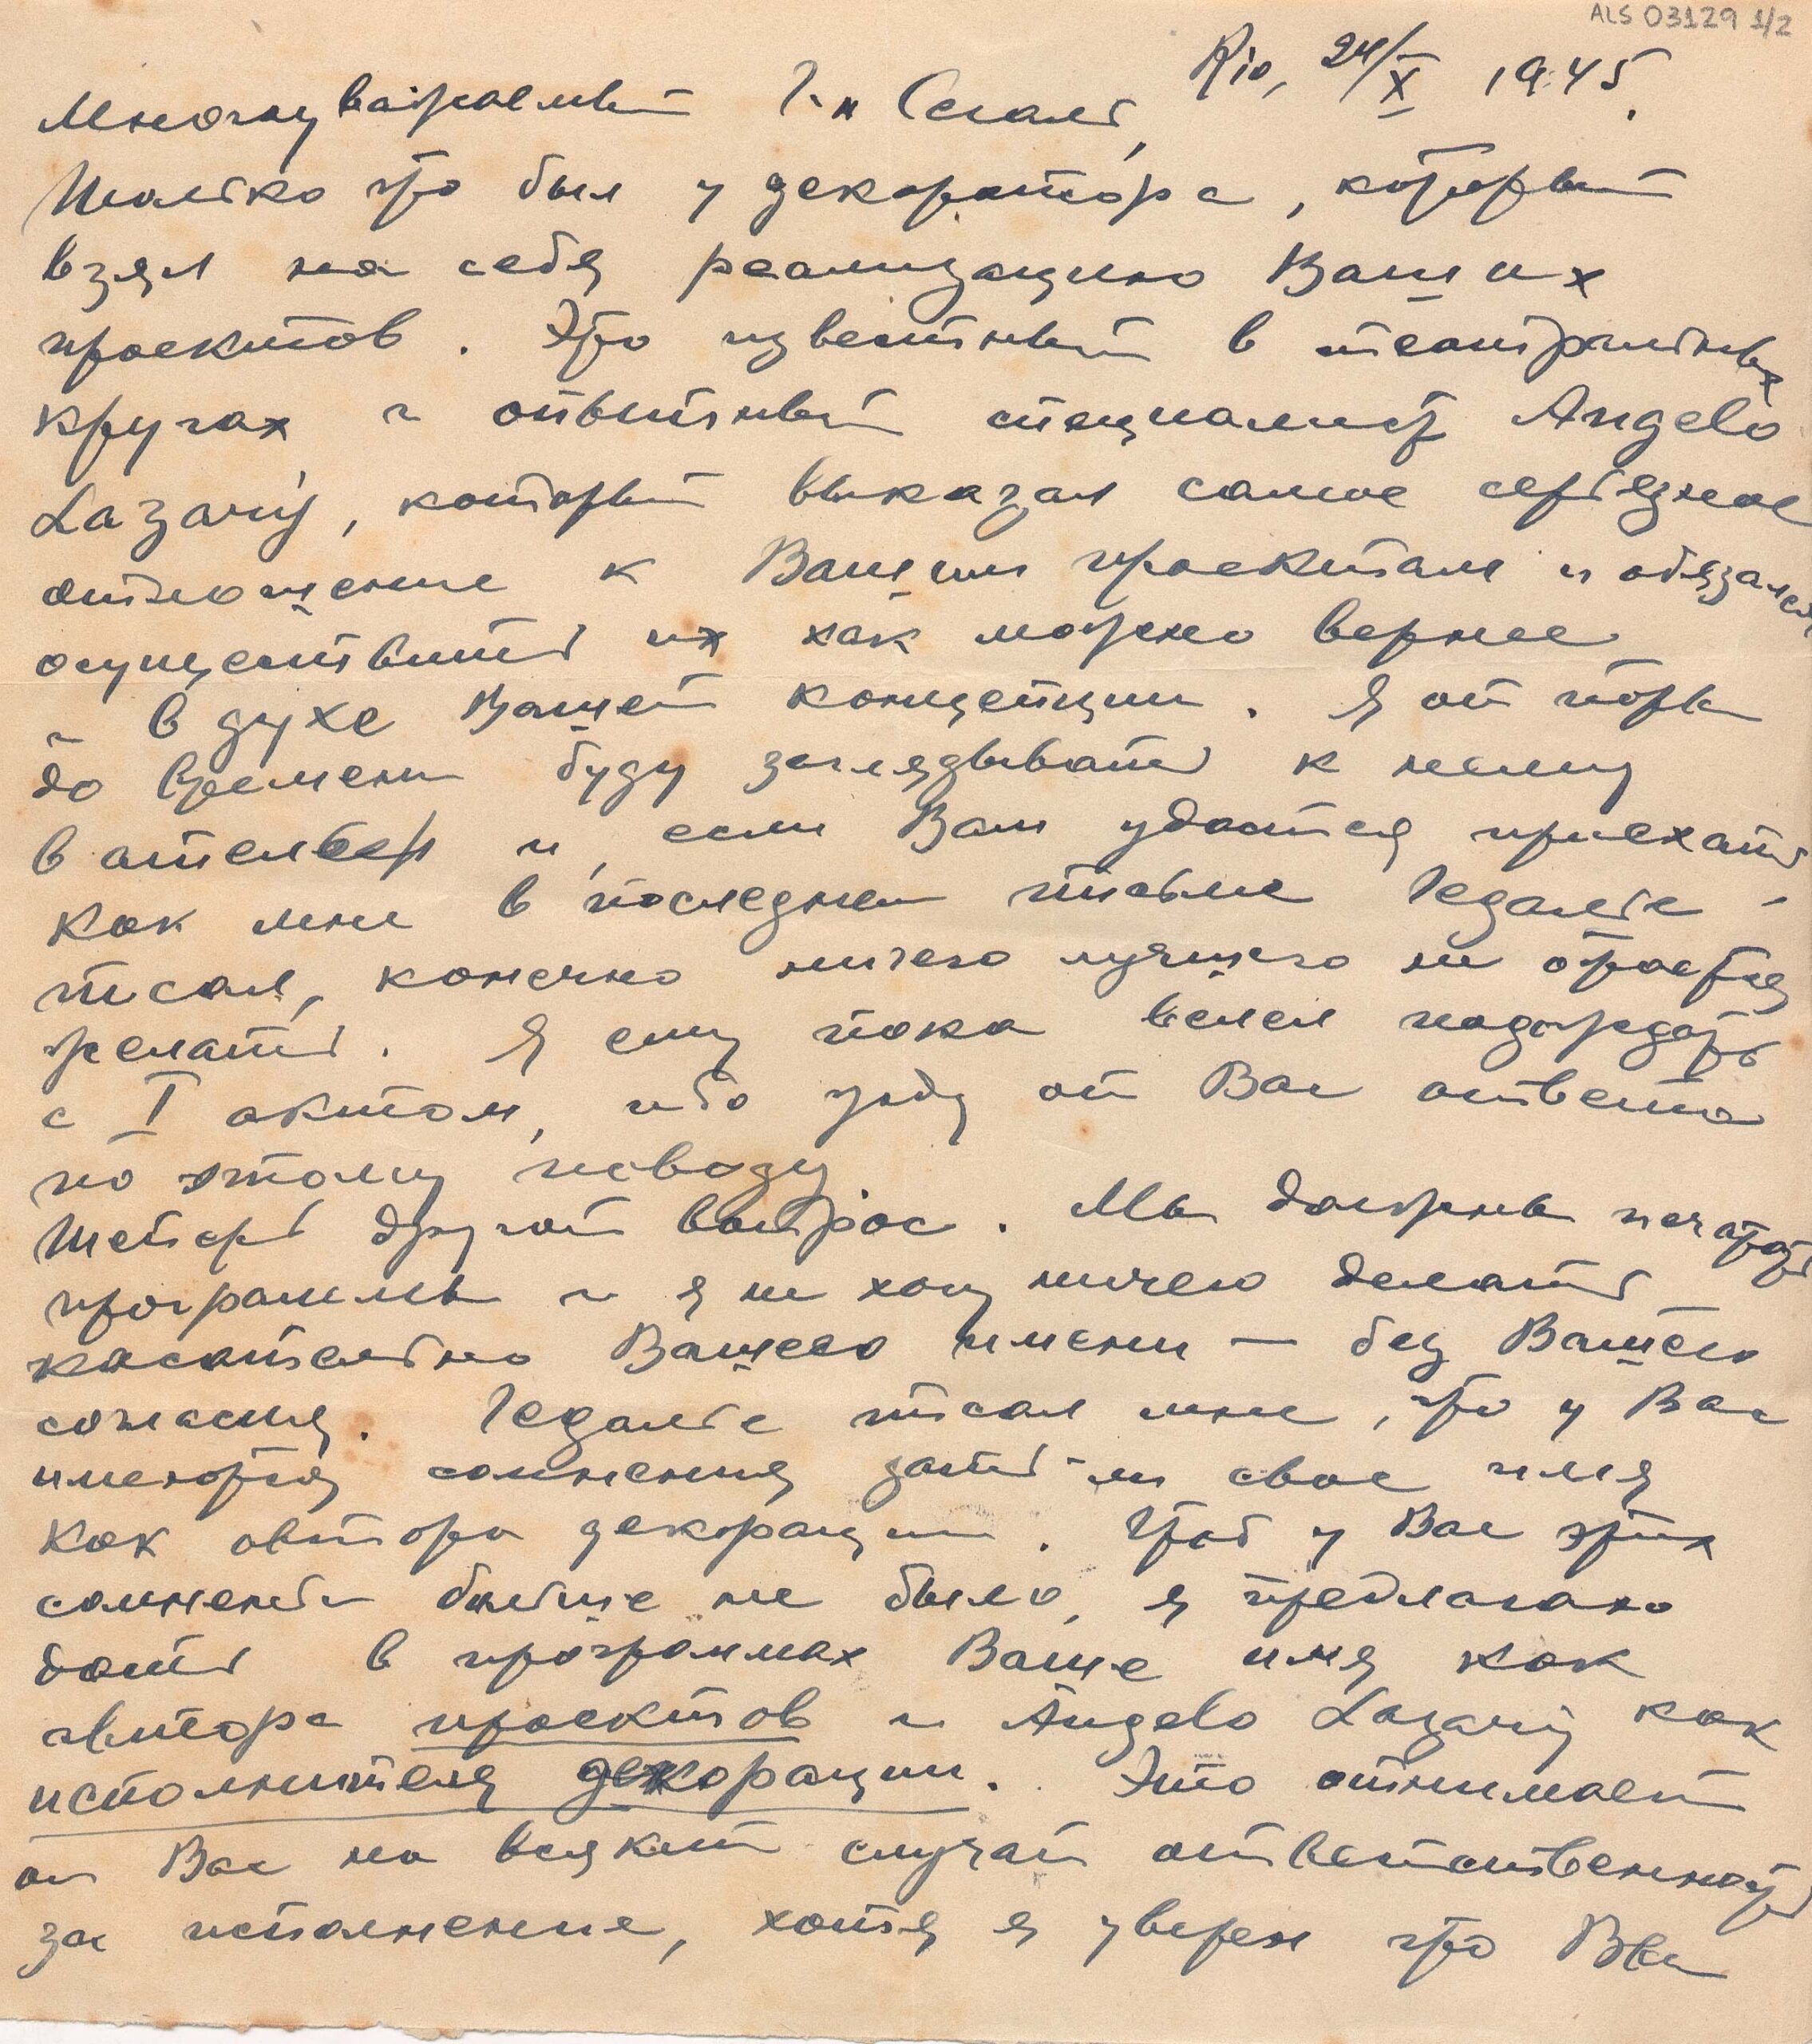 ALS 03129 1/2
Rio, 24/X 1945.
Многоуважаемый Г-н Сегаль,
Только что был у декоратора, который
взял на себя реализацию Ваших
проектов. Это известный в театральных
кругах и опытный специалист Angelo
Lazary, который выказал самое серьезное
отношение к Вашим проектам и обязался
осуществить их как можно вернее
и в духе Вашей концепции. Я от поры
до времени буду заглядывать к нему
в ателье и, если Вам удастся приехать
как мне в последнем письме Гедалье -
писал, конечно ничего лучшего не остается
желать. Я ему пока велел подождать
с I актом, ибо жду от Вас ответа
по этому поводу.
Теперь другой вопрос. Мы должны печатать
программы и я не хочу ничего делать
касательно Вашего имени — без Вашего
согласия. Гедалье писал мне, что у Вас
имеются сомнения дать-ли свое имя
как автора декорации. Чтоб у Вас этих
сомнений больше не было, я предлагаю
дать в программах Ваше имя как
автора проектов и Angelo Lazary как
исполнителя декорации. Это отнимает
от Вас на всякий случай ответственность
за исполнение, хотя я уверен что Вы